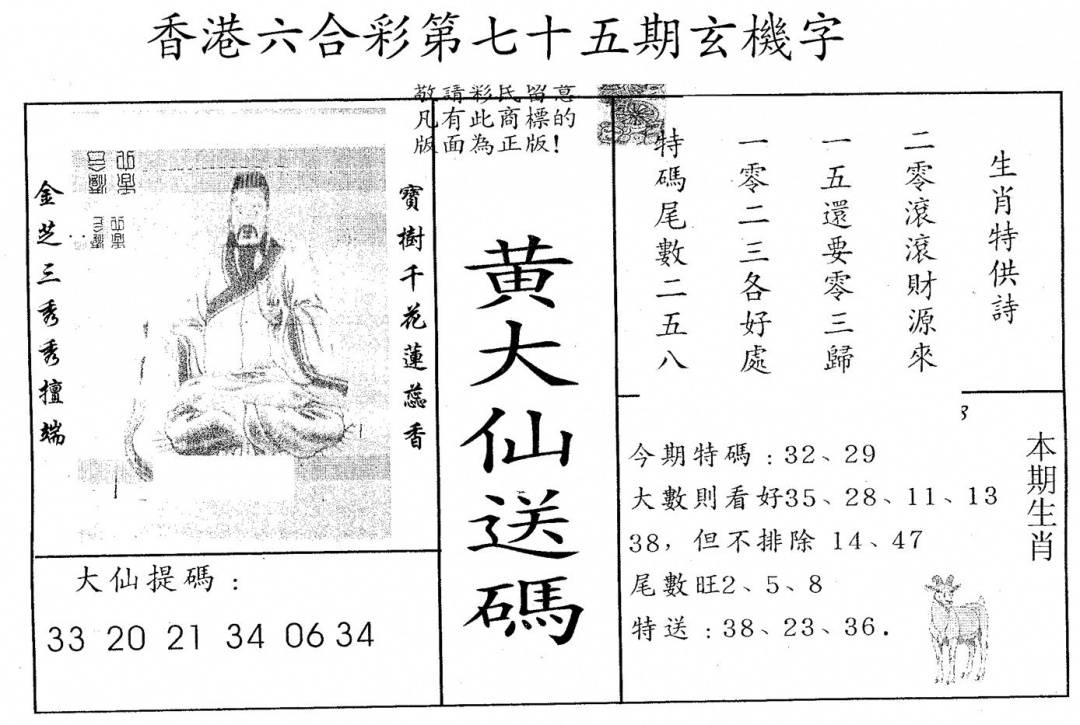 香港六合彩第七十五期玄機字
敬請彩民留意
凡有此商標的
版面為正版！
寶樹千花蓮蕊香
金芝三秀秀擅端
大仙提碼：
33 20 21 34 06 34
黃大仙送碼
生肖特供詩
二零滾滾財源來
一五還要零三歸
一零二三各好處
特碼尾數二五八
本期生肖
今期特碼：32、29
大數則看好35、28、11、13
38，但不排除 14、47
尾數旺2、5、8
特送：38、23、36.